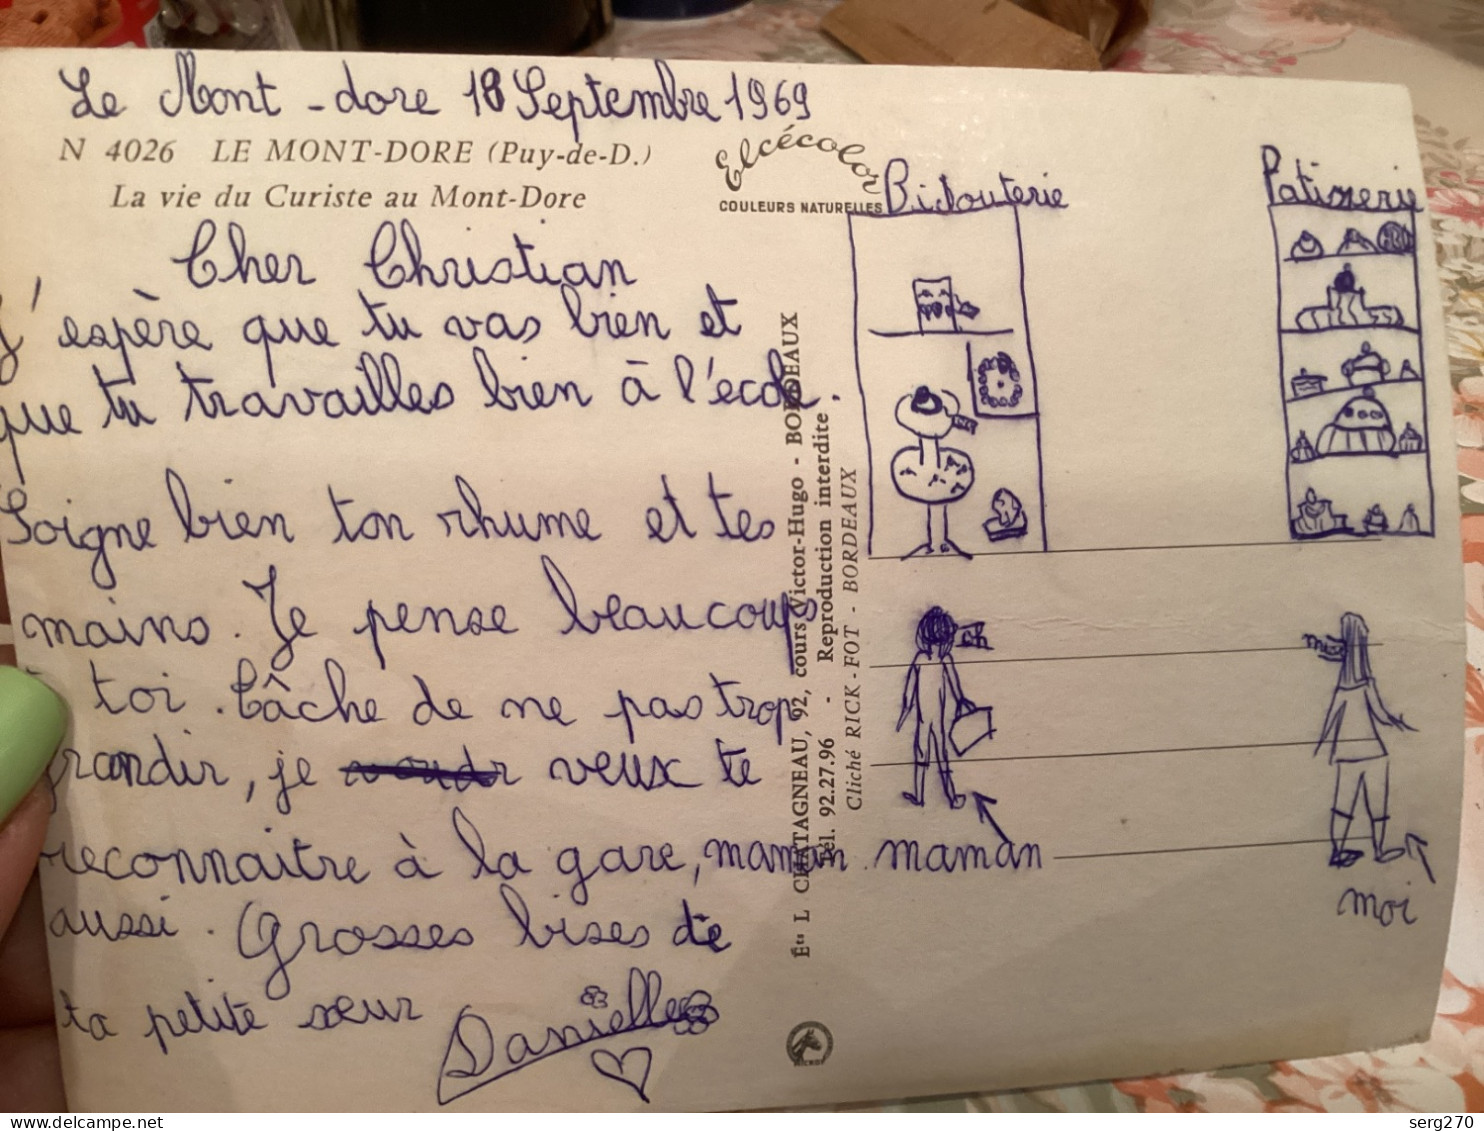 Le Mont-dore 18 Septembre 1969
N 4026 LE MONT-DORE (Puy-de-D.)
La vie du Curiste au Mont-Dore
Elcécolor
COULEURS NATURELLES
Cher Christian
J'espère que tu vas bien et
que tu travailles bien à l'école.
Soigne bien ton rhume et tes
mains. Je pense beaucoup
toi. Tâche de ne pas trop
grandir, je veux te
reconnaitre à la gare, maman
aussi. Grosses bises de
ta petite sœur
Danielle
Éts L CHATAGNEAU, 92, cours Victor-Hugo - BORDEAUX
Tél. 92.27.96 - Reproduction interdite
Cliché RICK-FOT - BORDEAUX
Bijouterie
Patisserie
ch
maman
moi
serg270